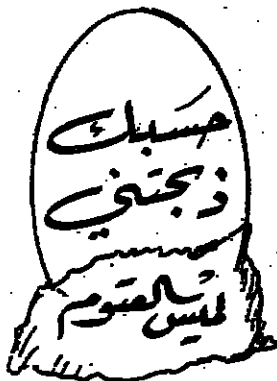 حسبك
ذبحتني
ليس بالعتوم